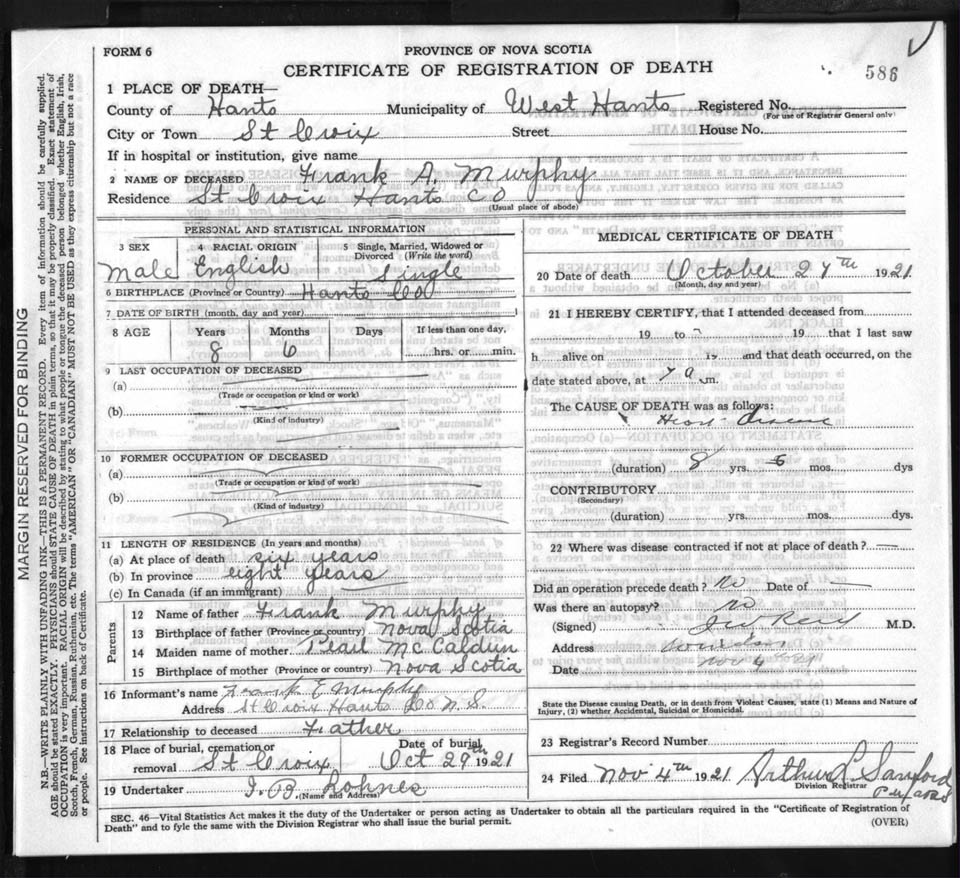 FORM 6
PROVINCE OF NOVA SCOTIA
CERTIFICATE OF REGISTRATION OF DEATH
586
1 PLACE OF DEATH—
County of Hants Municipality of West Hants Registered No.
(For use of Registrar General only)
City or Town St Croix Street House No.
If in hospital or institution, give name
2 NAME OF DECEASED Frank A. Murphy
Residence St Croix Hants Co
(Usual place of abode)
PERSONAL AND STATISTICAL INFORMATION
3 SEX 4 RACIAL ORIGIN 5 Single, Married, Widowed or Divorced (Write the word)
Male English Single
6 BIRTHPLACE (Province or Country) Hants Co
7 DATE OF BIRTH (month, day and year)
8 AGE Years Months Days If less than one day,
8 6 hrs. or min.
9 LAST OCCUPATION OF DECEASED
(a)
(Trade or occupation or kind or work)
(b)
(Kind of industry)
10 FORMER OCCUPATION OF DECEASED
(a)
(Trade or occupation or kind or work)
(b)
(Kind of industry)
11 LENGTH OF RESIDENCE (In years and months)
(a) At place of death six years
(b) In province eight years
(c) In Canada (if an immigrant)
Parents
12 Name of father Frank Murphy
13 Birthplace of father (Province or country) Nova Scotia
14 Maiden name of mother Pearl
15 Birthplace of mother (Province or country) Nova Scotia
16 Informant's name Frank E Murphy
Address St Croix Hants Co N.S.
17 Relationship to deceased Father
18 Place of burial, cremation or removal St Croix Date of burial Oct 29th 1921
19 Undertaker
(Name and Address)
MEDICAL CERTIFICATE OF DEATH
20 Date of death October 27th 1921
(Month, day and year)
21 I HEREBY CERTIFY, that I attended deceased from
19 to 19 that I last saw
h alive on 19 and that death occurred, on the
date stated above, at 7 a m.
The CAUSE OF DEATH was as follows:
Heart disease
(duration) 8 yrs. mos. dys
CONTRIBUTORY
(Secondary)
(duration) yrs. mos. dys.
22 Where was disease contracted if not at place of death?
Did an operation precede death? No Date of
Was there an autopsy? no
(Signed) M.D.
Address Windsor
Date Nov 4
State the Disease causing Death, or in death from Violent Causes, state (1) Means and Nature of
Injury, (2) whether Accidental, Suicidal or Homicidal.
23 Registrar's Record Number
24 Filed Nov 4th 1921 Arthur L Sanford
Division Registrar
SEC. 46—Vital Statistics Act makes it the duty of the Undertaker or person acting as Undertaker to obtain all the particulars required in the "Certificate of Registration of
Death" and to fyle the same with the Division Registrar who shall issue the burial permit.
(OVER)
MARGIN RESERVED FOR BINDING
N.B.—WRITE PLAINLY WITH UNFADING INK—THIS IS A PERMANENT RECORD. Every item of information should be carefully supplied.
AGE should be stated EXACTLY. PHYSICIANS should STATE CAUSE OF DEATH in plain terms, so that it may be properly classified. Exact statement of
OCCUPATION is very important. RACIAL ORIGIN will be described by stating to what people or tongue the deceased person belonged whether English, Irish,
Scotch, French, German, Russian, Ruthenian, etc. The terms "AMERICAN" OR "CANADIAN" MUST NOT BE USED as they express citizenship but not a race
or people. See instructions on back of Certificate.